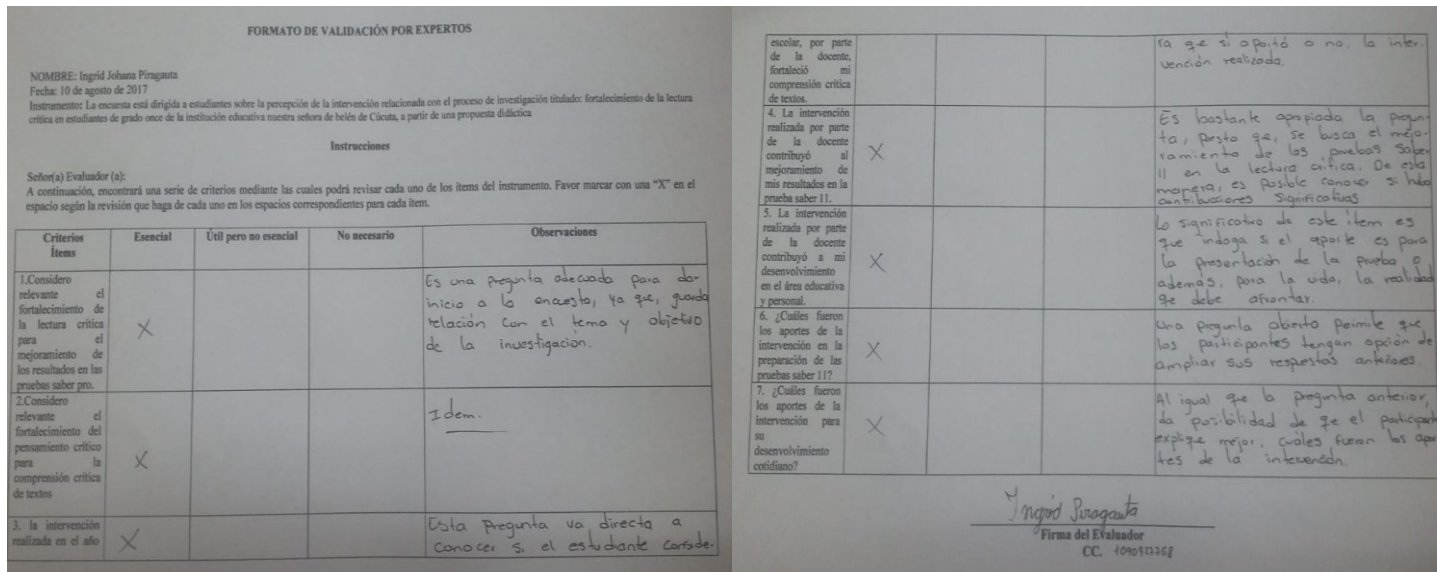 FORMATO DE VALIDACIÓN POR EXPERTOS
NOMBRE: Ingrid Johana Piragauta
Fecha: 10 de agosto de 2017
Instrumento: La encuesta está dirigida a estudiantes sobre la percepción de la intervención relacionada con el proceso de investigación titulado: fortalecimiento de la lectura
crítica en estudiantes de grado once de la institución educativa nuestra señora de belén de Cúcuta, a partir de una propuesta didáctica
Instrucciones
Señor(a) Evaluador (a):
A continuación, encontrará una serie de criterios mediante las cuales podrá revisar cada uno de los ítems del instrumento. Favor marcar con una "X" en el
espacio según la revisión que haga de cada uno en los espacios correspondientes para cada ítem.
Criterios
Ítems
Esencial
Útil pero no esencial
No necesario
Observaciones
1.Considero
relevante el
fortalecimiento de
la lectura crítica
para el
mejoramiento de
los resultados en las
pruebas saber pro.
X
Es una pregunta adecuada para dar
inicio a la encuesta, ya que, guarda
relación con el tema y objetivo
de la investigación.
2.Considero
relevante el
fortalecimiento del
pensamiento crítico
para la
comprensión crítica
de textos
X
Idem.
3. la intervención
realizada en el año
X
Esta pregunta va directo a
conocer si el estudiante conside-
escolar, por parte
de la docente,
fortaleció mi
comprensión crítica
de textos.
ra que si aportó o no, la inter-
vención realizada.
4. La intervención
realizada por parte
de la docente
contribuyó al
mejoramiento de
mis resultados en la
prueba saber 11.
X
Es bastante apropiada la pregun-
ta, puesto qe, se busca el mejo-
ramiento de las pruebas Saber
11 en la lectura crítica. De esta
manera, es posible conocer si hubo
contribuciones significativas
5. La intervención
realizada por parte
de la docente
contribuyó a mi
desenvolvimiento
en el área educativa
y personal.
X
Lo significativo de este ítem es
que indaga si el aporte es para
la presentación de la prueba o
además, para la vida, la realidad
qe debe afrontar.
6. ¿Cuáles fueron
los aportes de la
intervención en la
preparación de las
pruebas saber 11?
X
Una pregunta abierta permite que
los participantes tengan opción de
ampliar sus respuestas anteriores.
7. ¿Cuáles fueron
los aportes de la
intervención para
su
desenvolvimiento
cotidiano?
X
Al igual que la pregunta anterior,
da posibilidad de qe el participante
expliqe mejor, cuáles fueron los apor
tes de la intervención.
Ingrid Piragauta
Firma del Evaluador
CC.